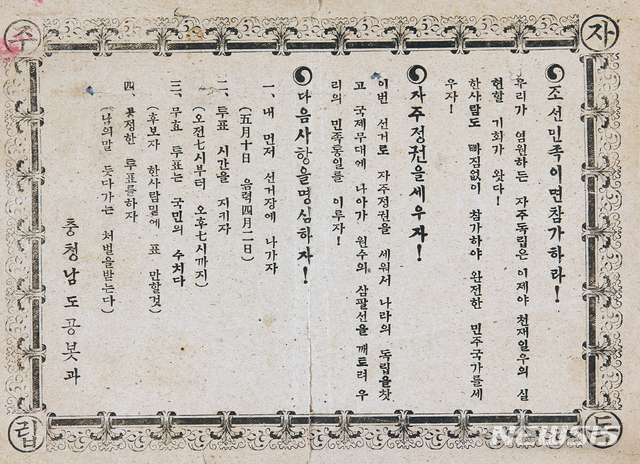 자
주
조선민족이면참가하라!
우리가 염원하든 자주독립은 이제야 천재일우의 실
현할 기회가 왔다!
한사람도 빠짐없이 참가하야 완전한 민주국가를세
우자!
자주정권을세우자!
이번 선거로 자주정권을 세워서 나라의 독립을찻
고 국제무대에 나아가 원수의 삼팔선을 깨트려 우
리의 민족통일를 이루자!
다음사항을명심하자!
一、내 먼저 선거장에 나가자
(五月十日 음력四月二日)
二、투표 시간을 지키자
(오전七시부터 오후七시까지)
三、무효 투표는 국민의 수치다
(후보자 한사람밑에 표 만할것)
四、공정한 투표를하자
(남의말 듯다가는 처벌을받는다)
충청남도공봇과
립
NEWSIS